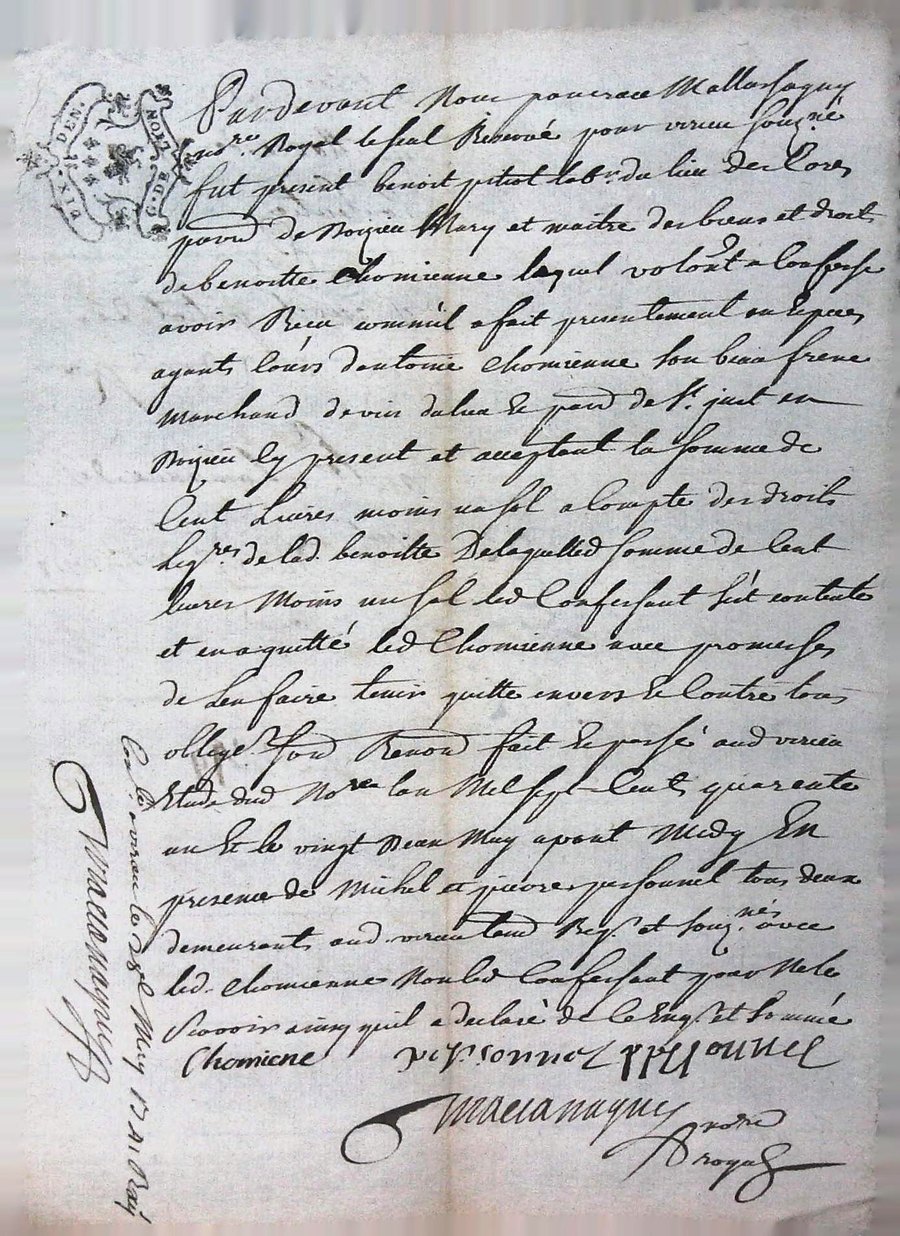 SIX DEN. G. DE NOT.
Pardevant Nous pancrace
no.re Royal le seal Reservé pour virieu sousig.né
fut present benoit pitiot lab.r du lieu de
parr.e de Boizieu Mary et maitre des biens et droits
de benoitte Chomienne lequel volont a Confessé
avoir Receu comm'il a fait presentement en Especes
ayants Cours d'antoine Chomienne son beau frere
Marchand de vin du lieu Et parr de St. just en
Doizieu Cy present et acceptant la somme de
Cent Livres moins un sol a Compte des droits
leg.res de lad. benoitte De laquelled somme de Cent
livres Moins un sol led Confessant s'est contenté
et en a quitté led Chomienne avec promesses
de l'en faire tenir quitte envers Et Contre tous
oblige.s soud Renond fait Et passé aud virieu
Etude dud No.re lan Mil sept Cents quarente
un Et le vingt Deux May apant Midy En
presence de Michel et pierre peyssonnel tous deux
demeurants aud. virieu Req.s et sousig.nés avec
led. Chomienne Non led Confessant pour Ne le
Scavoir ainsy quil a declaré de Ce Enq.s et sommé
Chomiene peyssonnel ppeyssonnel
no.re
royal
Con.lé a virieu le 28e May 1741 Reçu